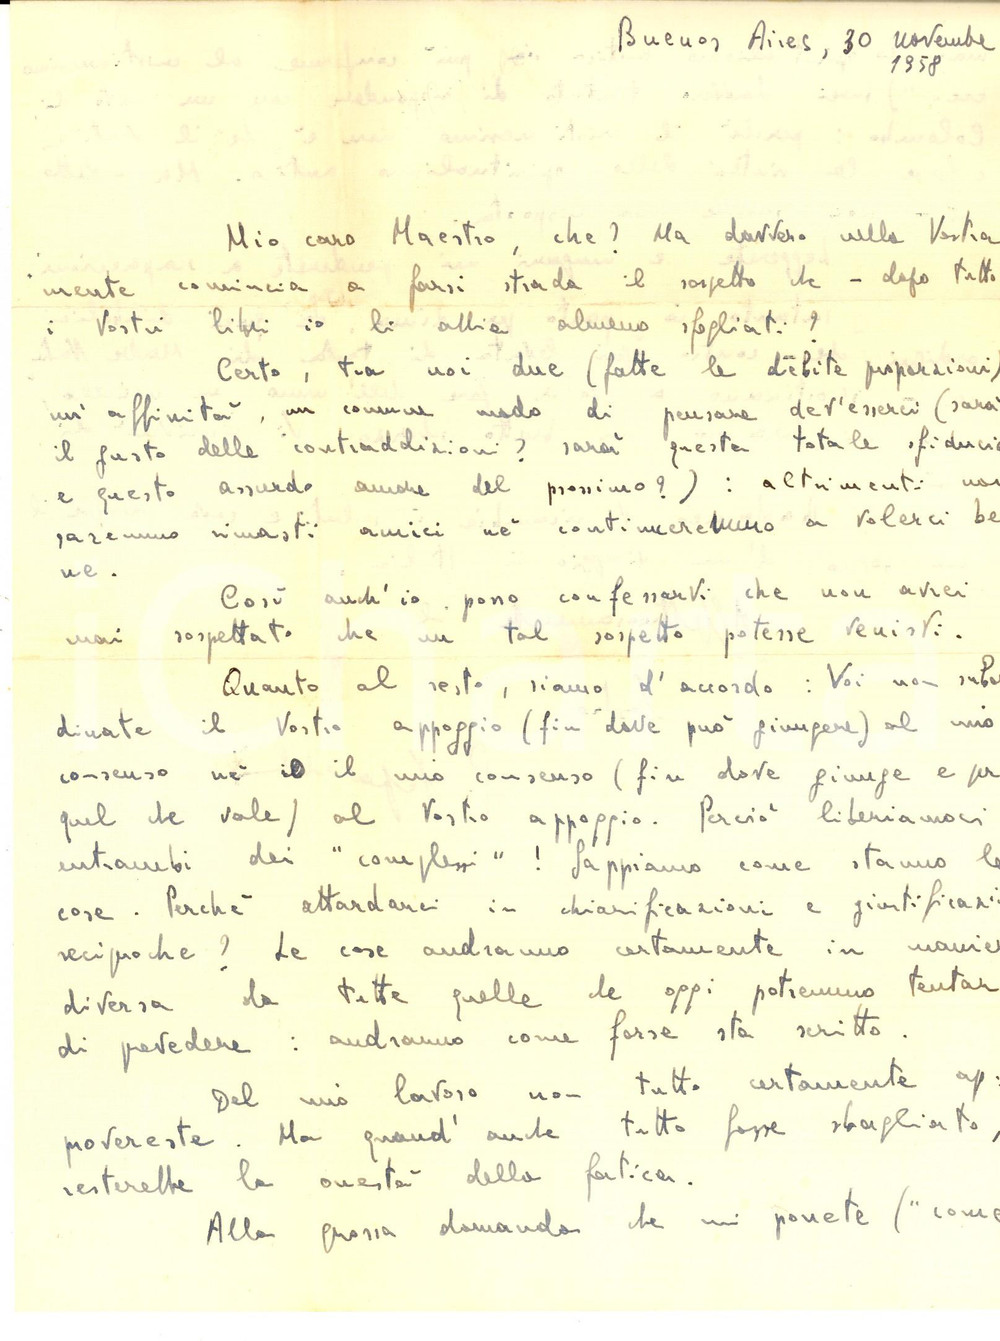 Buenos Aires, 30 novembre
1958
Mio caro Maestro, che? Ma davvero nella Vostra
mente comincia a farsi strada il sospetto che – dopo tutto
i Vostri libri io li abbia almeno sfogliati?
Certo, tra noi due (fatte le debite proporzioni)
un' affinità, un comune modo di pensare dev'esserci (sarà
il gusto delle contraddizioni? sarà questa totale sfiducia
e questo assurdo amore del prossimo?) : altrimenti non
saremmo rimasti amici nè continueremmo a volerci be
ne.
Così anch'io posso confessarvi che non avrei
mai sospettato che un tal sospetto potesse venirvi.
Quanto al resto, siamo d'accordo : Voi non subor
dinate il Vostro appoggio (fin dove può giungere) al mio
consenso nè io il mio consenso (fin dove giunge e per
quel che vale) al Vostro appoggio. Perciò liberiamoci
entrambi dei "complessi"! Sappiamo come stanno le
cose. Perchè attardarci in chiarificazioni e giustificazi
reciproche? Le cose andranno certamente in manier
diversa da tutte quelle che oggi potremmo tentar
di prevedere : andranno come forse sta scritto.
Del mio lavoro non tutto certamente ap:
provereste. Ma quand'anche tutto fosse sbagliato,
resterebbe la onestà della fatica.
Alla grossa domanda che mi ponete ("come